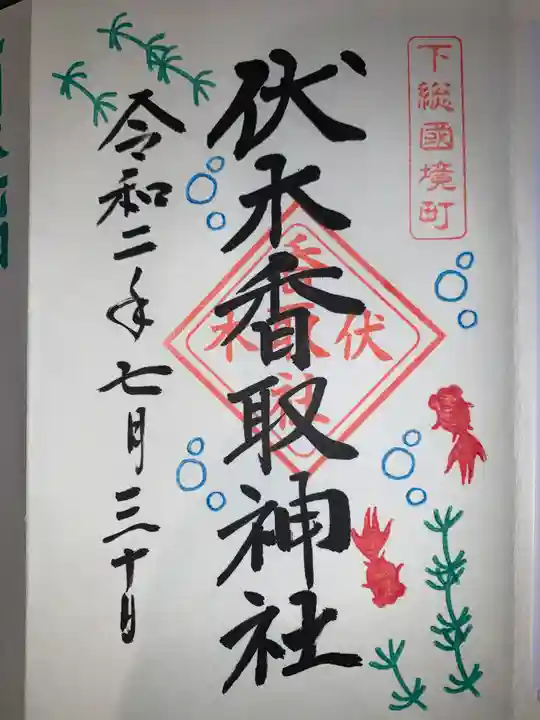 下総國境町
伏木香取神社
伏木
香取社
令和二年七月三十日